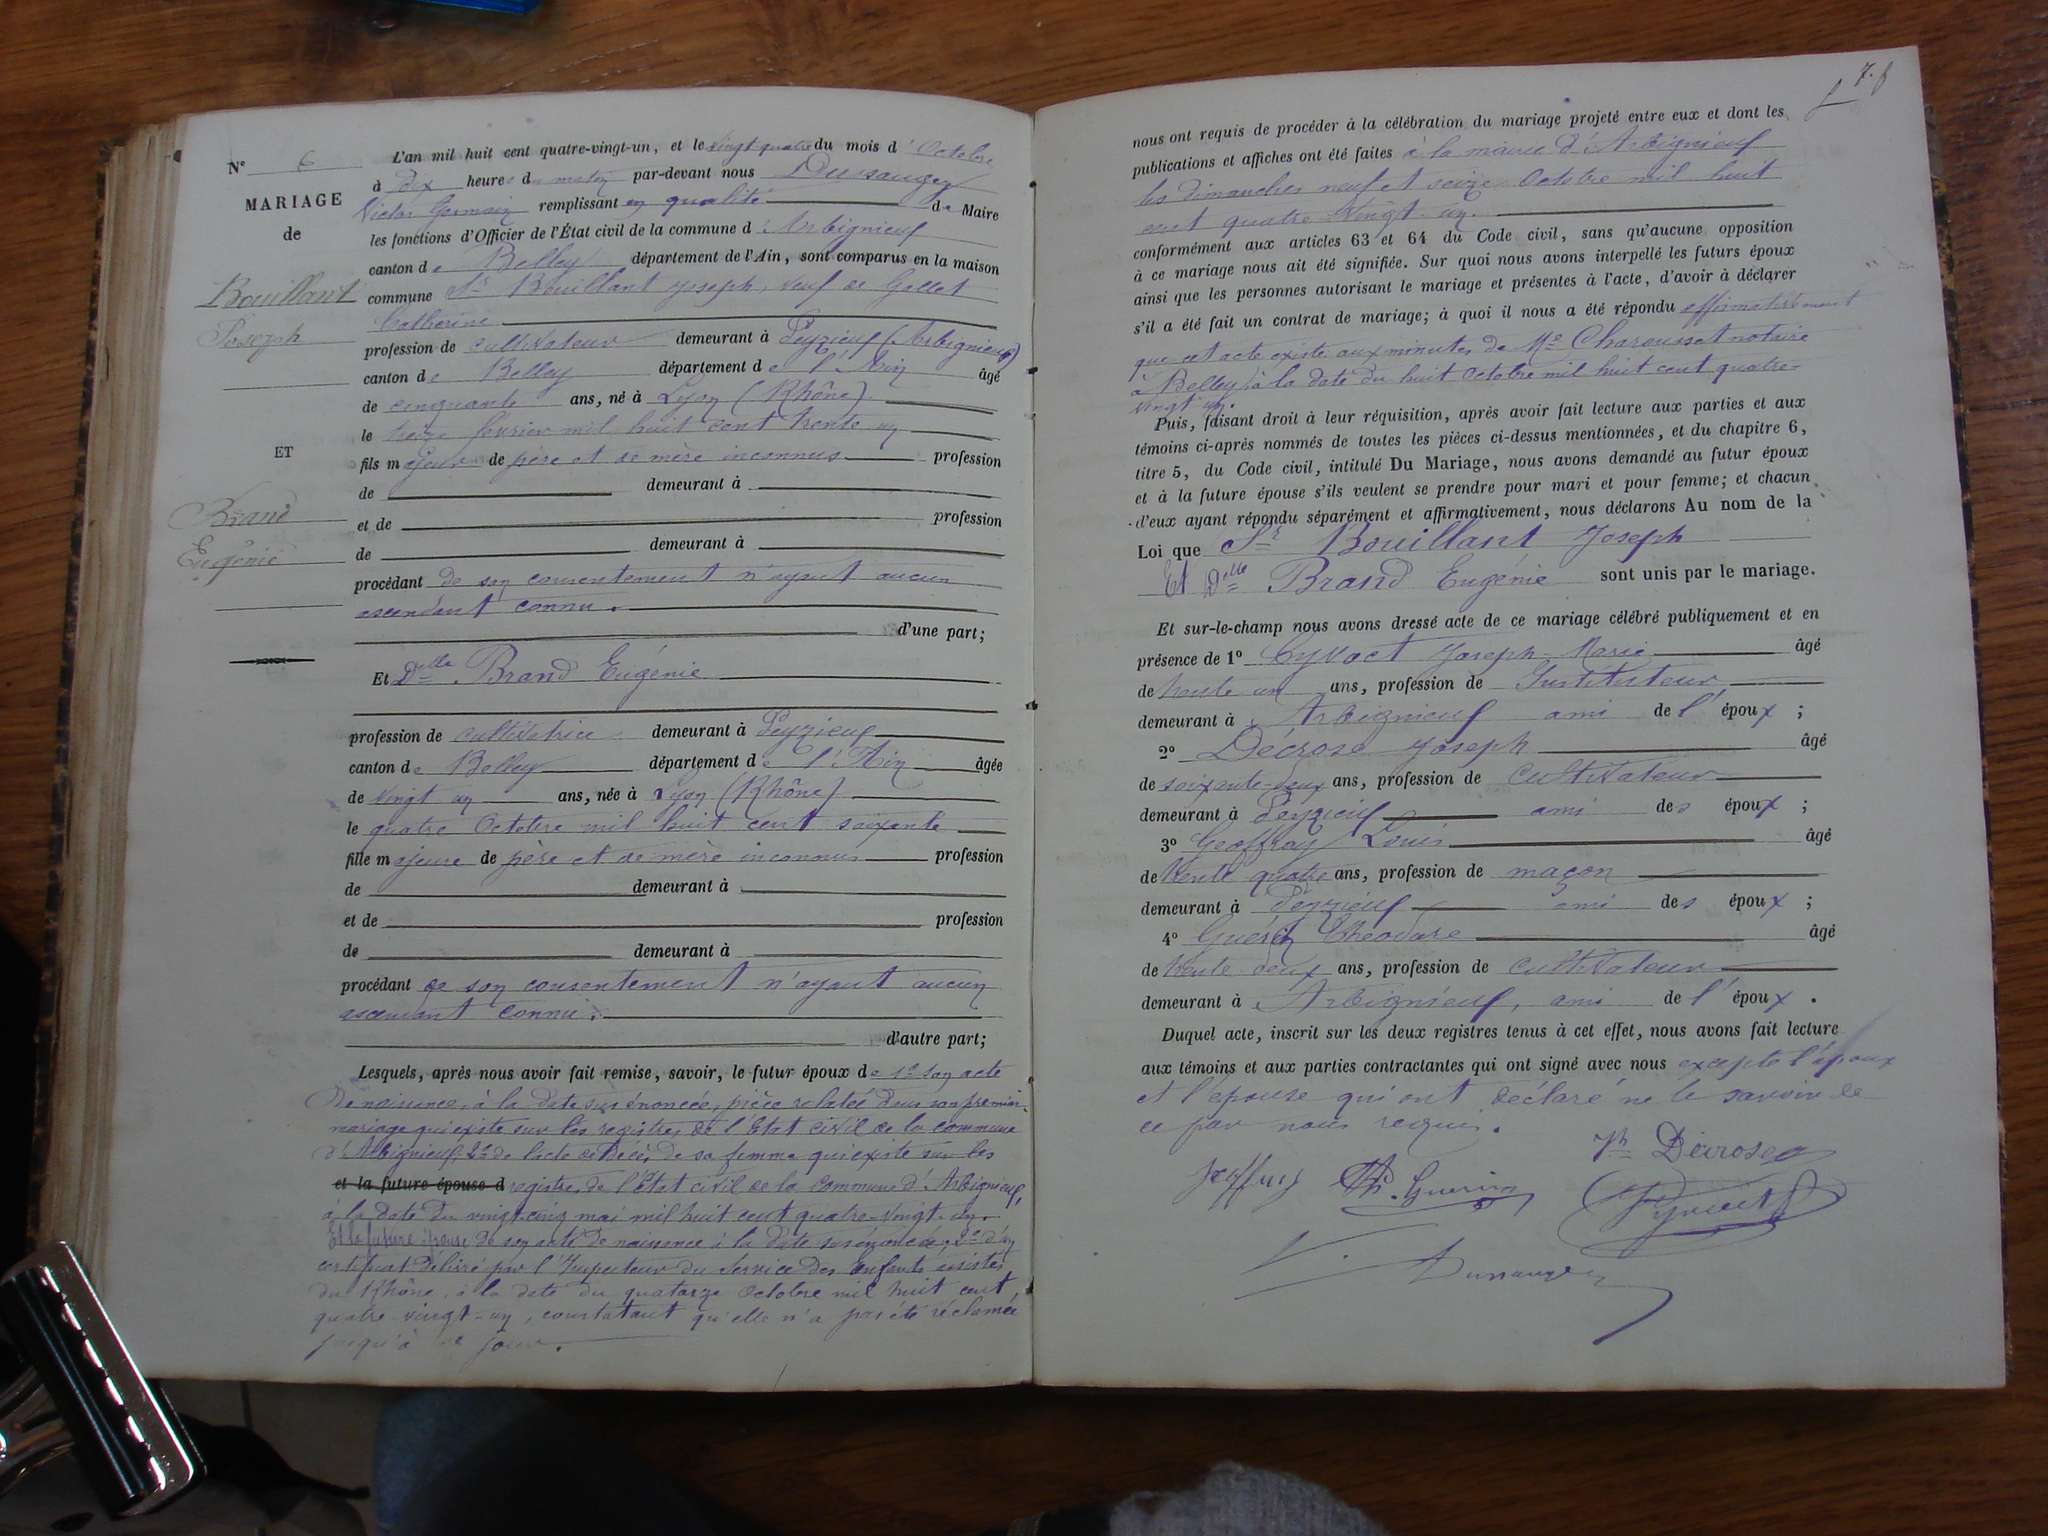 N° 6
MARIAGE
de
Bouillant
Joseph
ET
Brand
Eugénie
L'an mil huit cent quatre-vingt-un, et le vingt quatre du mois d'Octobre
à dix heures du matin par-devant nous Dussauge
Victor Germain remplissant en qualité de Maire
les fonctions d'Officier de l'État civil de la commune d'Arbignieuf
canton de Belley département de l'Ain, sont comparus en la maison
commune Sr Bouillant Joseph, veuf de Gallet
Catherine
profession de cultivateur demeurant à Peyzieuf (Arbignieuf)
canton de Belley département de l'Ain âgé
de cinquante ans, né à Lyon (Rhône)
le treize février mil huit cent trente un
fils majeur de père et de mère inconnus profession
de demeurant à
et de profession
de demeurant à
procédant de son consentement n'ayant aucun
ascendant connu.
d'une part;
Et Delle Brand Eugénie
profession de cultivatrice demeurant à Peyzieuf
canton de Belley département de l'Ain âgée
de vingt un ans, née à Lyon (Rhône)
le quatre Octobre mil huit cent soixante
fille majeure de père et de mère inconnus profession
de demeurant à
et de profession
de demeurant à
procédant de son consentement n'ayant aucun
ascendant connu.
d'autre part;
Lesquels, après nous avoir fait remise, savoir, le futur époux de 1° son acte
de naissance, à la date sus énoncée, pièce relatée dans son premier
mariage qui existe sur les registres de l'État civil de la commune
d'Arbignieuf, 2° de l'acte de décès de sa femme qui existe sur les
et la future épouse d registres de l'État civil de la commune d'Arbignieuf,
à la date du vingt-cinq mai mil huit cent quatre-vingt-un.
Et la future épouse de son acte de naissance à la date susénoncée, 2° d'un
certificat délivré par l'Inspecteur du Service des Enfants assistés
du Rhône, à la date du quatorze Octobre mil huit cent
quatre-vingt-un, constatant qu'elle n'a pas été réclamée
jusqu'à ce jour.
nous ont requis de procéder à la célébration du mariage projeté entre eux et dont les
publications et affiches ont été faites à la mairie d'Arbignieuf
les dimanches neuf et seize Octobre mil huit
cent quatre vingt-un.
conformément aux articles 63 et 64 du Code civil, sans qu'aucune opposition
à ce mariage nous ait été signifiée. Sur quoi nous avons interpellé les futurs époux
ainsi que les personnes autorisant le mariage et présentes à l'acte, d'avoir à déclarer
s'il a été fait un contrat de mariage; à quoi il nous a été répondu affirmativement
que cet acte existe aux minutes de Me Charousset notaire
à Belley, à la date du huit Octobre mil huit cent quatre-
vingt un.
Puis, faisant droit à leur réquisition, après avoir fait lecture aux parties et aux
témoins ci-après nommés de toutes les pièces ci-dessus mentionnées, et du chapitre 6,
titre 5, du Code civil, intitulé Du Mariage, nous avons demandé au futur époux
et à la future épouse s'ils veulent se prendre pour mari et pour femme; et chacun
d'eux ayant répondu séparément et affirmativement, nous déclarons Au nom de la
Loi que Sr Bouillant Joseph
Et Delle Brand Eugénie sont unis par le mariage.
Et sur-le-champ nous avons dressé acte de ce mariage célébré publiquement et en
présence de 1° Cyvoct Joseph-Marie âgé
de trente un ans, profession de Instituteur
demeurant à Arbignieuf ami de l'époux;
2° Décrose Joseph âgé
de soixante-deux ans, profession de cultivateur
demeurant à Peyzieuf ami des époux;
3° Geoffray Louis âgé
de trente quatre ans, profession de maçon
demeurant à Peyzieuf ami des époux;
4° Guérin Théodore âgé
de trente deux ans, profession de cultivateur
demeurant à Arbignieuf, ami de l'époux.
Duquel acte, inscrit sur les deux registres tenus à cet effet, nous avons fait lecture
aux témoins et aux parties contractantes qui ont signé avec nous excepté l'époux
et l'épouse qui ont déclaré ne le savoir de
ce par nous requis.
Jh Décrose
Th. Guerin